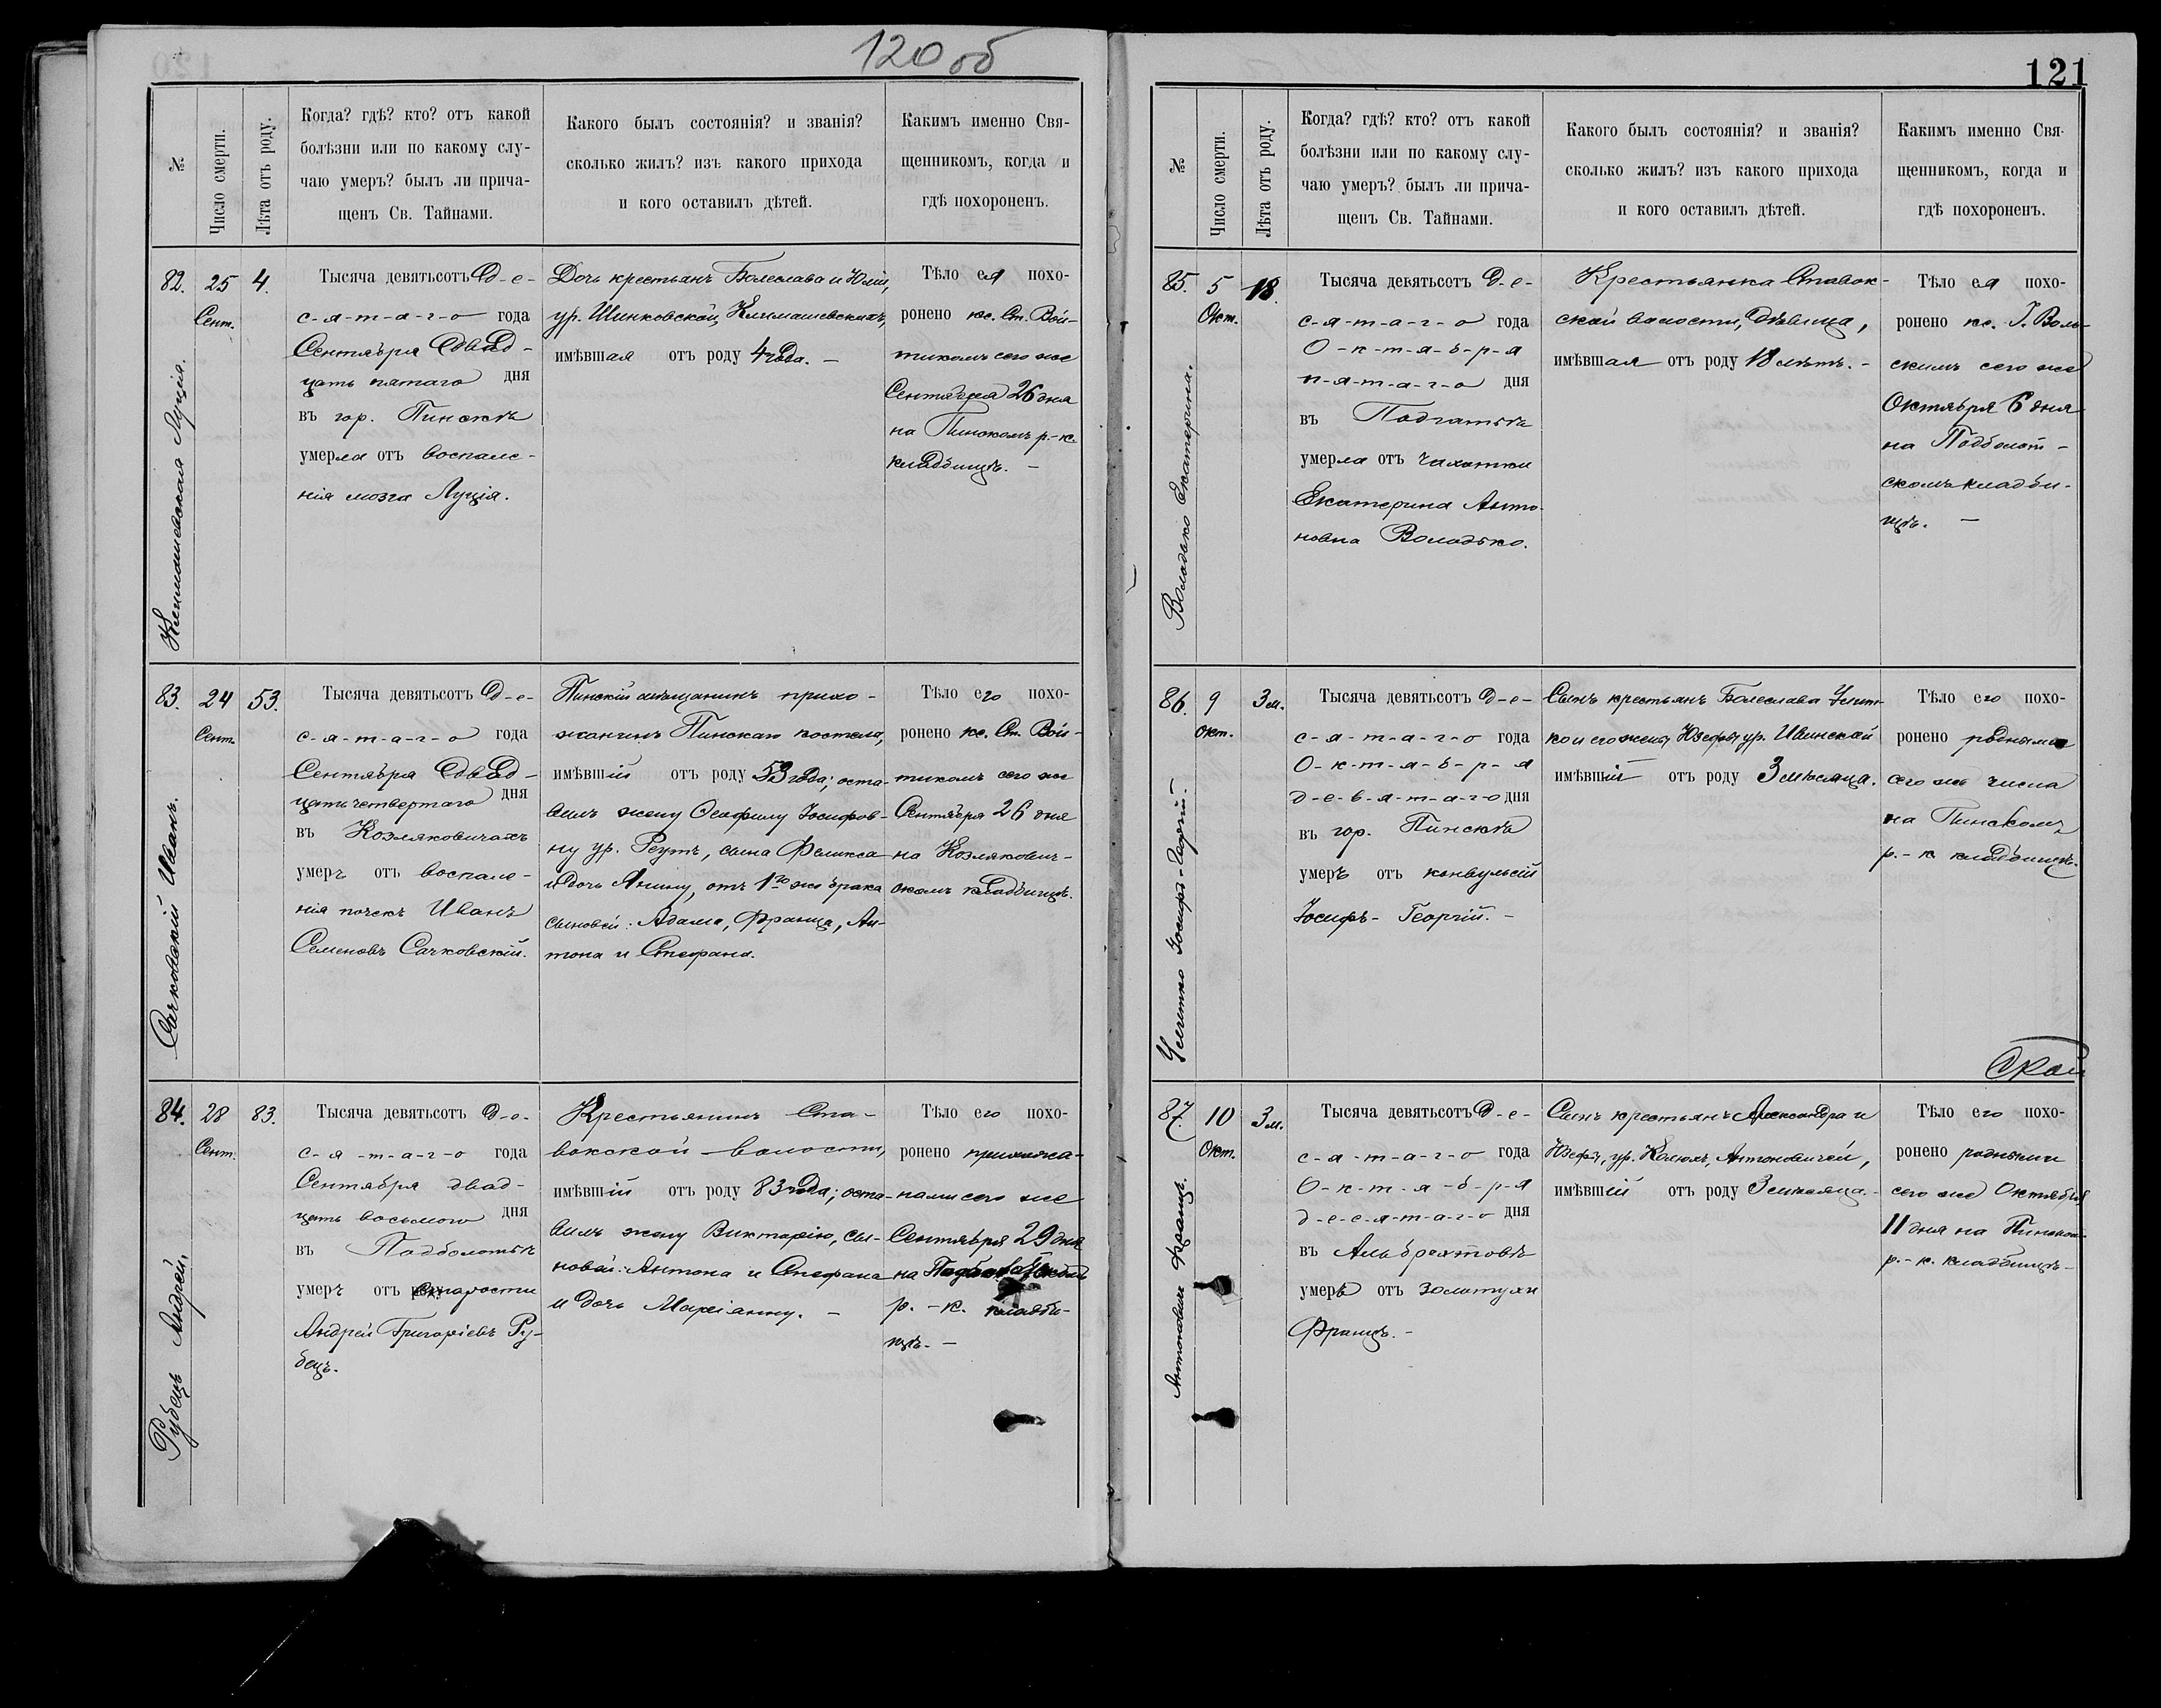 120 об
№
Число смерти.
Лѣта отъ роду.
Когда? гдѣ? кто? отъ какой
болѣзни или по какому слу-
чаю умеръ? былъ ли прича-
щенъ Св. Тайнами.
Какого былъ состоянія? и званія?
сколько жилъ? изъ какого прихода
и кого оставилъ дѣтей.
Какимъ именно Свя-
щенникомъ, когда и
гдѣ похороненъ.
82.
Климашевская Луція.
25
Сент.
4.
Тысяча девятьсотъ Д-е-
с-я-т-а-г-о года
Сентября двад-
цать пятаго дня
въ гор. Пинскѣ
умерла отъ воспале-
нія мозга Луція.
Дочь крестьянъ Болеслава и Юліи,
ур. Шинковской, Климашевскихъ,
имѣвшая отъ роду 4 года. –
Тѣло ея похо-
ронено кс. Ст. Вой-
тикомъ сего же
Сентября 26 дня
на Пинскомъ р.-к.
кладбищѣ. –
83.
Сачковскій Иванъ.
24
Сент.
53.
Тысяча девятьсотъ Д-е-
с-я-т-а-г-о года
Сентября двад-
цать четвертаго дня
въ Козляковичахъ
умеръ отъ воспале-
нія почекъ Иванъ
Семеновъ Сачковскій.
Пинскій мѣщанинъ прихо-
жанинъ Пинскаго костела,
имѣвшій отъ роду 53 года; оста-
вилъ жену Теофилу Іосифов-
ну ур. Реутъ, сына Феликса
и дочь Анину, отъ 1го же брака
сыновей: Адама, Франца, Ан-
тона и Стефана.
Тѣло его похо-
ронено кс. Ст. Вой-
тикомъ сего же
Сентября 26 дня
на Козлякович-
скомъ кладбищѣ.
84.
Рубецъ Андрей.
28
Сент.
83.
Тысяча девятьсотъ Д-е-
с-я-т-а-г-о года
Сентября двад-
цать восьмого дня
въ Подболотьѣ
умеръ отъ старости
Андрей Григоріевъ Ру-
бецъ.
Крестьянинъ Ста-
вокской волости,
имѣвшій отъ роду 83 года; оста-
вилъ жену Викторію, сы-
новей: Антона и Стефана
и дочь Маріанну. –
Тѣло его похо-
ронено прихожа-
нами сего же
Сентября 29 дня
на
р.-к. кладби-
щѣ. –
121
№
Число смерти.
Лѣта отъ роду.
Когда? гдѣ? кто? отъ какой
болѣзни или по какому слу-
чаю умеръ? былъ ли прича-
щенъ Св. Тайнами.
Какого былъ состоянія? и званія?
сколько жилъ? изъ какого прихода
и кого оставилъ дѣтей.
Какимъ именно Свя-
щенникомъ, когда и
гдѣ похороненъ.
85.
Володько Екатерина.
5
Окт.
18.
Тысяча девятьсот Д-е-
с-я-т-а-г-о года
О-к-т-я-б-р-я
п-я-т-а-г-о дня
въ
умерла отъ чахотки
Екатерина Анто-
новна Володько.
Крестьянка Ставок-
ской волости, дѣвица,
имѣвшая отъ роду 18 лѣтъ. –
Тѣло ея похо-
ронено кс. І. Воль-
скимъ сего же
Октября 6 дня
на Подболот-
скомъ кладби-
щѣ. –
86.
Іосифъ-Георгій. –
9
Окт.
3 м.
Тысяча девятьсот Д-е-
с-я-т-а-г-о года
О-к-т-я-б-р-я
д-е-в-я-т-а-г-о дня
въ гор. Пинскѣ
умеръ отъ конвульсій
Іосифъ-Георгій. –
Сынъ крестьянъ Болеслава
ко и его жены Юзефы, ур. Ивинской
имѣвшій отъ роду 3 мѣсяца.
Тѣло его похо-
ронено родными
сего же числа
на Пинскомъ
р.-к. кладбищѣ.
87.
Антоновичъ Францъ.
10
Окт.
3 м.
Тысяча девятьсотъ Д-е-
с-я-т-а-г-о года
О-к-т-я-б-р-я
д-е-с-я-т-а-г-о дня
въ Альбрехтовѣ
умеръ отъ золотухи
Францъ. –
Сынъ крестьянъ Александра и
Юзефы, ур. Антоновичей,
имѣвшій отъ роду 3 мѣсяца. –
Тѣло его похо-
ронено родными
сего же Октября
11 дня на Пинском
р.-к. кладбищѣ –